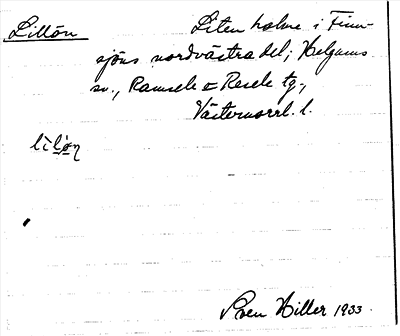 Lillön Liten holme i Finn-
sjöns nordvästra del; Helgums
sn., Ramsele o Resele tg.,
Västernorrl. l.
lìlø̀n
Sven Hiller 1933.